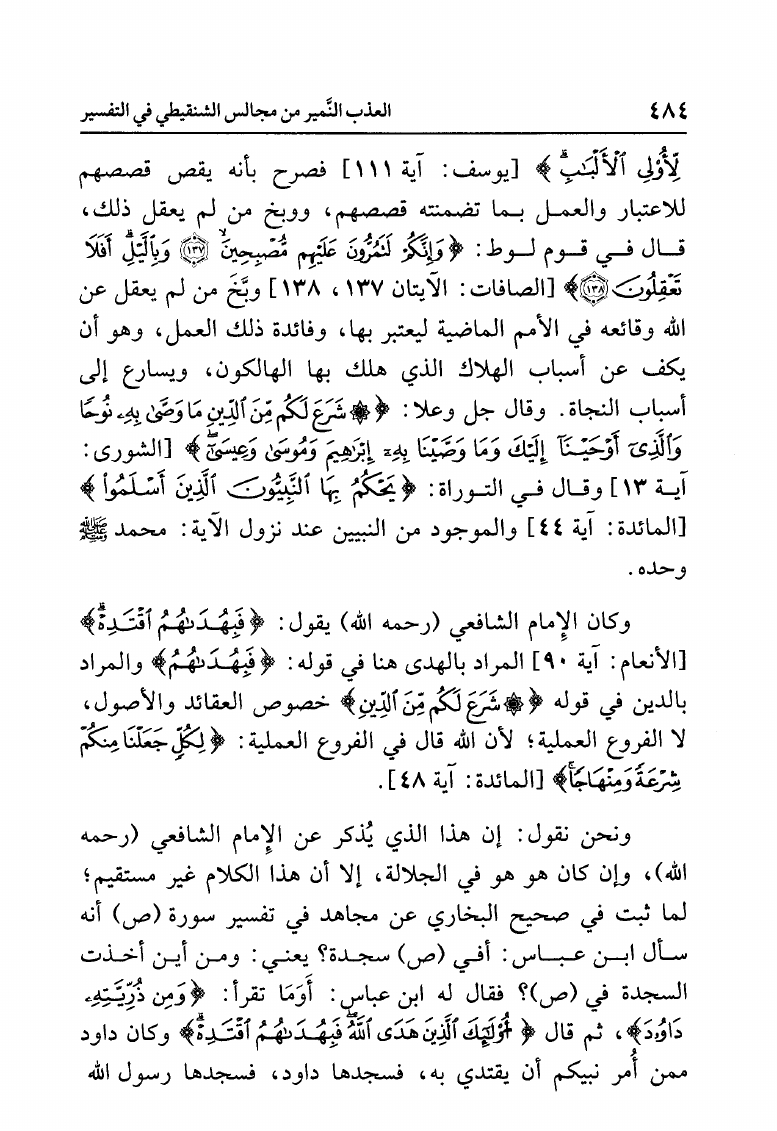 ٤٨٤ العذب النَّمير من مجالس الشنقيطي في التفسير
لِّأُوْلِي ٱلْأَلْبَٰبِۗ ﴾ [يوسف: آية ١١١] فصرح بأنه يقص قصصهم
للاعتبار والعمل بما تضمنته قصصهم، ووبخ من لم يعقل ذلك،
قال في قوم لوط: ﴿ وَإِنَّكُمْ لَتَمُرُّونَ عَلَيْهِم مُّصْبِحِينَۙ ١٣٧ وَبِٱلَّيْلِۗ أَفَلَا
تَعْقِلُونَ ١٣٨ ﴾ [الصافات: الآيتان ١٣٧ ، ١٣٨] وبَّخَ من لم يعقل عن
الله وقائعه في الأمم الماضية ليعتبر بها، وفائدة ذلك العمل، وهو أن
يكف عن أسباب الهلاك الذي هلك بها الهالكون، ويسارع إلى
أسباب النجاة. وقال جل وعلا: ﴿ ۞ شَرَعَ لَكُم مِّنَ ٱلدِّينِ مَا وَصَّىٰ بِهِۦ نُوحًا
وَٱلَّذِىٓ أَوْحَيْنَآ إِلَيْكَ وَمَا وَصَّيْنَا بِهِۦٓ إِبْرَٰهِيمَ وَمُوسَىٰ وَعِيسَىٰٓۖ ﴾ [الشورى:
آية ١٣] وقال في التوراة: ﴿ يَحْكُمُ بِهَا ٱلنَّبِيُّونَ ٱلَّذِينَ أَسْلَمُوا۟ ﴾
[المائدة: آية ٤٤] والموجود من النبيين عند نزول الآية: محمد ﷺ
وحده.
وكان الإمام الشافعي (رحمه الله) يقول: ﴿ فَبِهُدَىٰهُمُ ٱقْتَدِهْۗ ﴾
[الأنعام: آية ٩٠] المراد بالهدى هنا في قوله: ﴿ فَبِهُدَىٰهُمُ ﴾ والمراد
بالدين في قوله ﴿ ۞ شَرَعَ لَكُم مِّنَ ٱلدِّينِ ﴾ خصوص العقائد والأصول،
لا الفروع العملية؛ لأن الله قال في الفروع العملية: ﴿ لِكُلٍّ جَعَلْنَا مِنكُمْ
شِرْعَةً وَمِنْهَاجًاۚ ﴾ [المائدة: آية ٤٨].
ونحن نقول: إن هذا الذي يُذكر عن الإمام الشافعي (رحمه
الله)، وإن كان هو هو في الجلالة، إلا أن هذا الكلام غير مستقيم؛
لما ثبت في صحيح البخاري عن مجاهد في تفسير سورة (ص) أنه
سأل ابن عباس: أفي (ص) سجدة؟ يعني: ومن أين أخذت
السجدة في (ص)؟ فقال له ابن عباس: أَوَمَا تقرأ: ﴿ وَمِن ذُرِّيَّتِهِۦ
دَاوُۥدَ ﴾، ثم قال ﴿ أُو۟لَٰٓئِكَ ٱلَّذِينَ هَدَى ٱللَّهُۖ فَبِهُدَىٰهُمُ ٱقْتَدِهْۗ ﴾ وكان داود
ممن أُمر نبيكم أن يقتدي به، فسجدها داود، فسجدها رسول الله